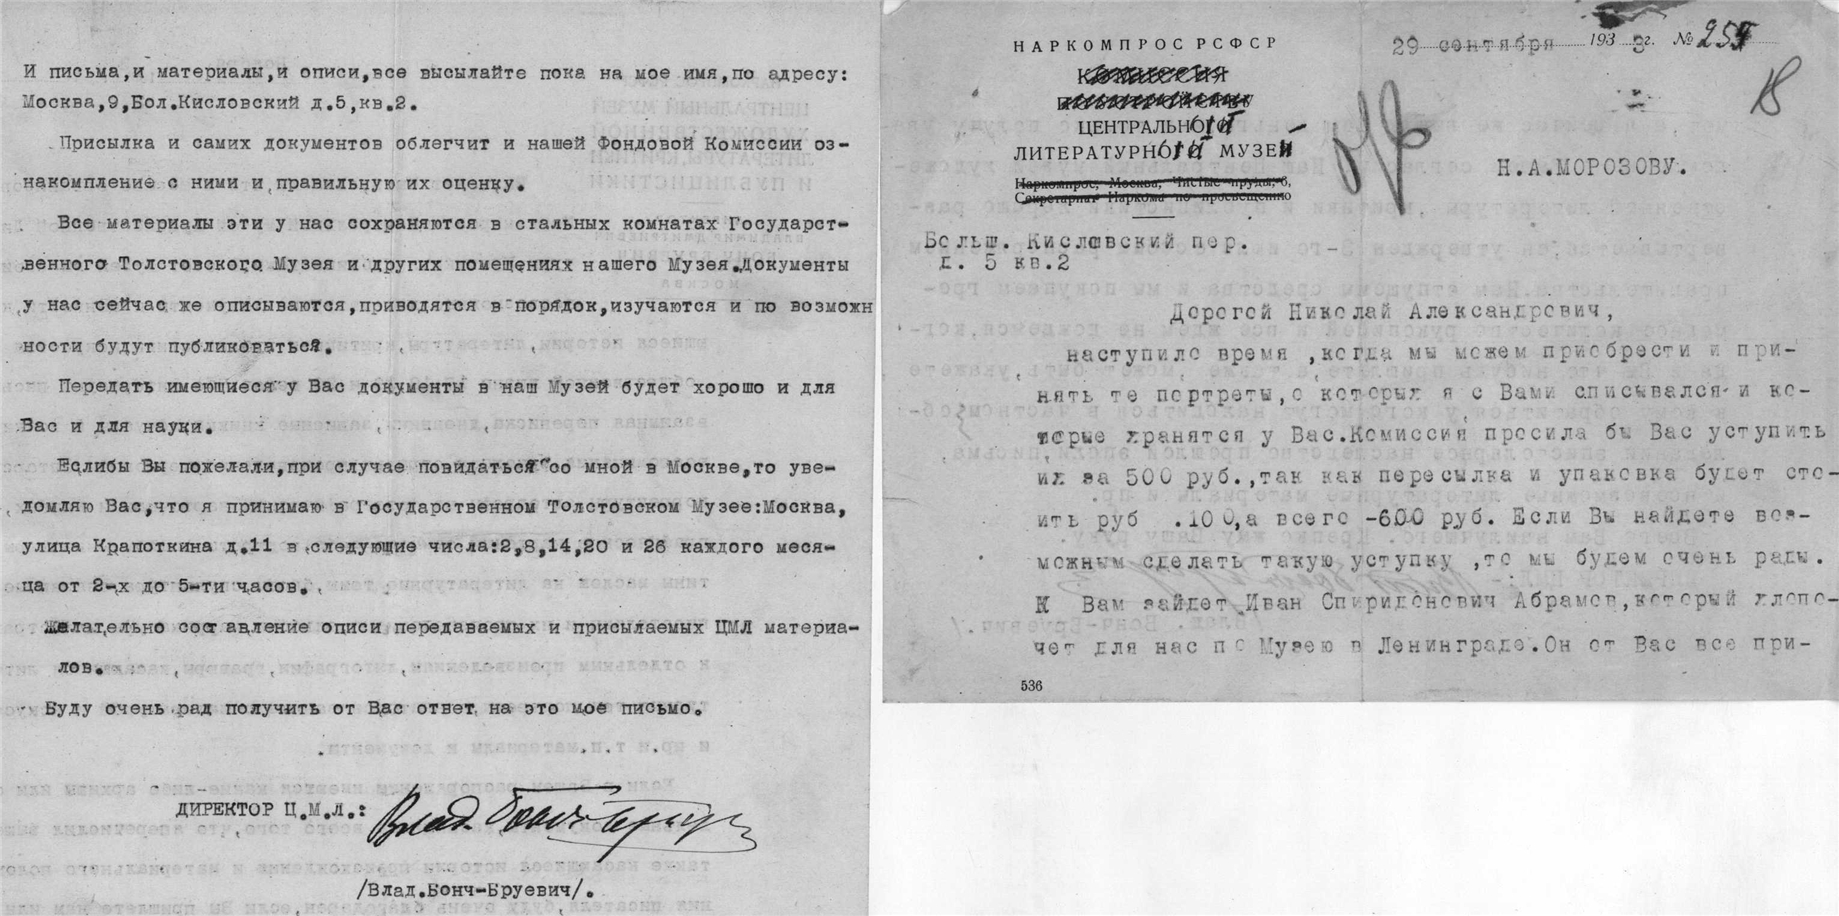 И письма,и материалы,и описи,все высылайте пока на мое имя,по адресу:
Москва,9,Бол.Кисловский д.5,кв.2.
Присылка и самих документов облегчит и нашей Фондовой Комиссии оз-
накомпление с ними и правильную их оценку.
Все материалы эти у нас сохраняются в стальных комнатах Государст-
венного Толстовского Музея и других помещениях нашего Музея.Документы
у нас сейчас же описываются,приводятся в порядок,изучаются и по возможн
ности будут публиковаться.
Передать имеющиеся у Вас документы в наш Музей будет хорошо и для
Вас и для науки.
Еслибы Вы пожелали,при случае повидаться со мной в Москве,то уве-
домляю Вас,что я принимаю в Государственном Толстовском Музее:Москва,
улица Крапоткина д.11 в следующие числа:2,8,14,20 и 26 каждого меся-
ца от 2-х до 5-ти часов.
Желательно составление описи передаваемых и присылаемых ЦМЛ материа-
лов.
Буду очень рад получить от Вас ответ на это мое письмо.
ДИРЕКТОР Ц.М.Л.: Влад. Бонч-Бруевич
/Влад.Бонч-Бруевич/.
НАРКОМПРОС РСФСР
КОМИССИЯ
ЦЕНТРАЛЬНЫЙ
ЛИТЕРАТУРНЫЙ МУЗЕЙ
Наркомпрос, Москва, Чистые пруды, 6,
Секретариат Наркома по просвещению
29 сентября 1933 г. №
18
Н.А.МОРОЗОВУ.
Больш. Кисловский пер.
д. 5 кв.2
Дорогой Николай Александрович,
наступило время ,когда мы можем приобрести и при-
нять те портреты,о которых я с Вами списывался и ко-
торые хранятся у Вас.Комиссия просила бы Вас уступить
их за 500 руб.,так как пересылка и упаковка будет сто-
ить руб .100,а всего -600 руб. Если Вы найдете воз-
можным сделать такую уступку ,то мы будем очень рады.
К Вам зайдет Иван Спиридонович Абрамов,который хлопо-
чет для нас по Музею в Ленинграде.Он от Вас все при-
536